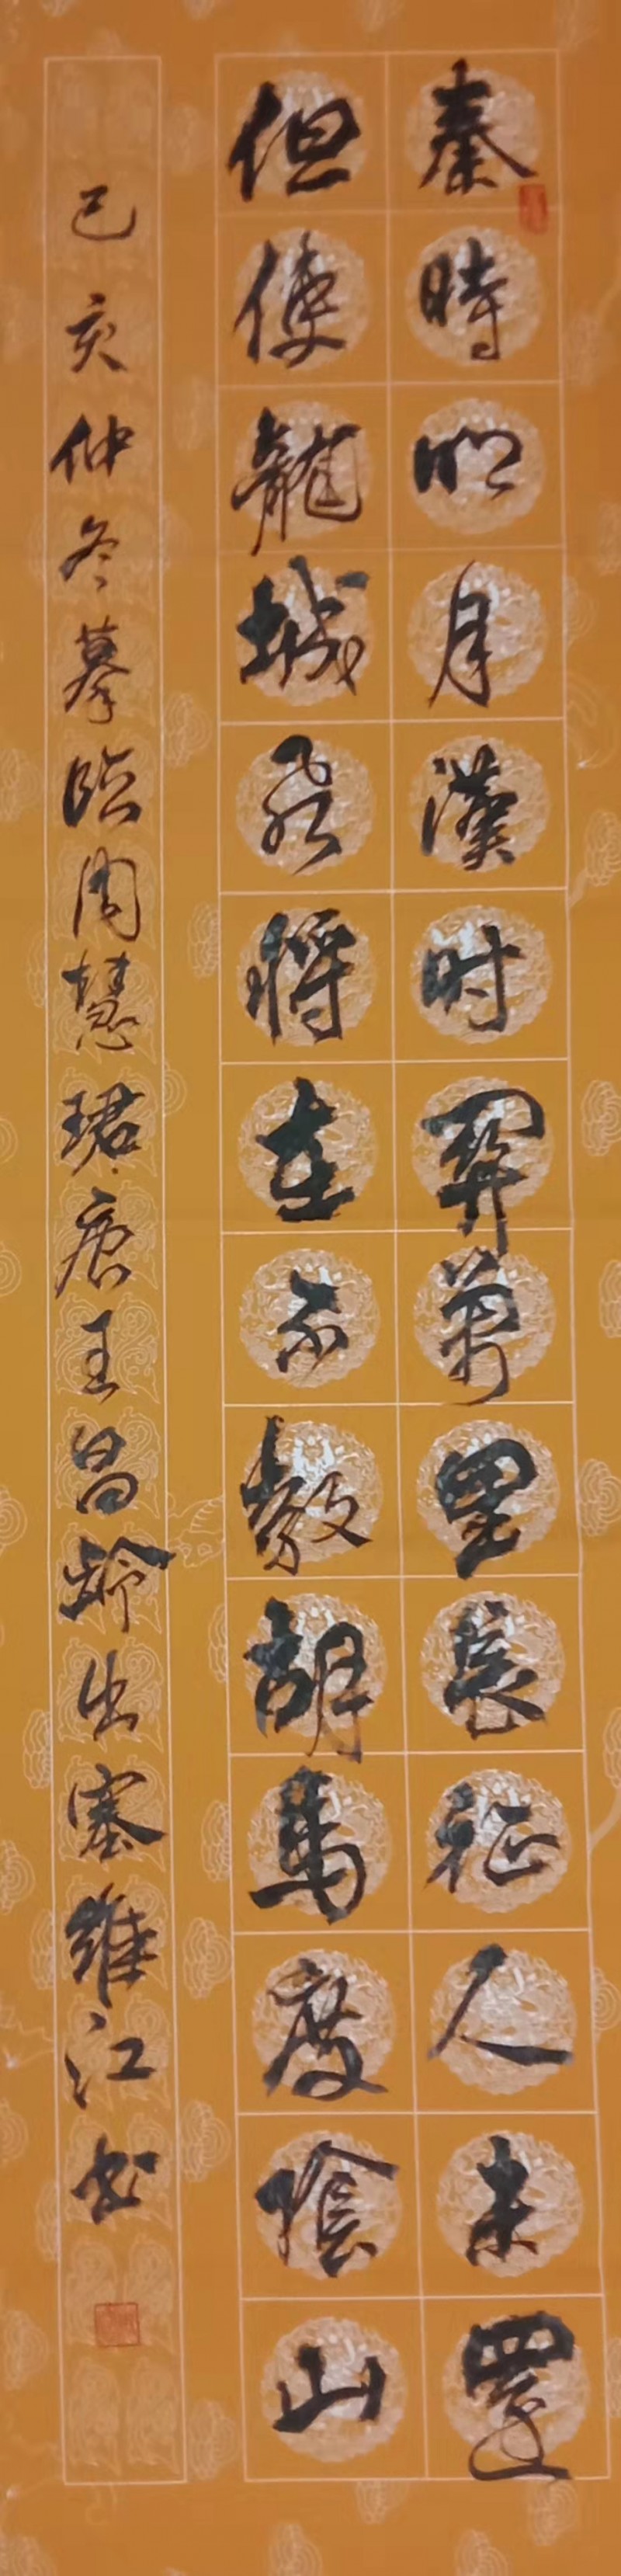 秦時明月漢时關萬里長征人未還
但使龍城飛將在不教胡馬度陰山
己亥仲冬摹临周慧珺唐王昌龄出塞維江书